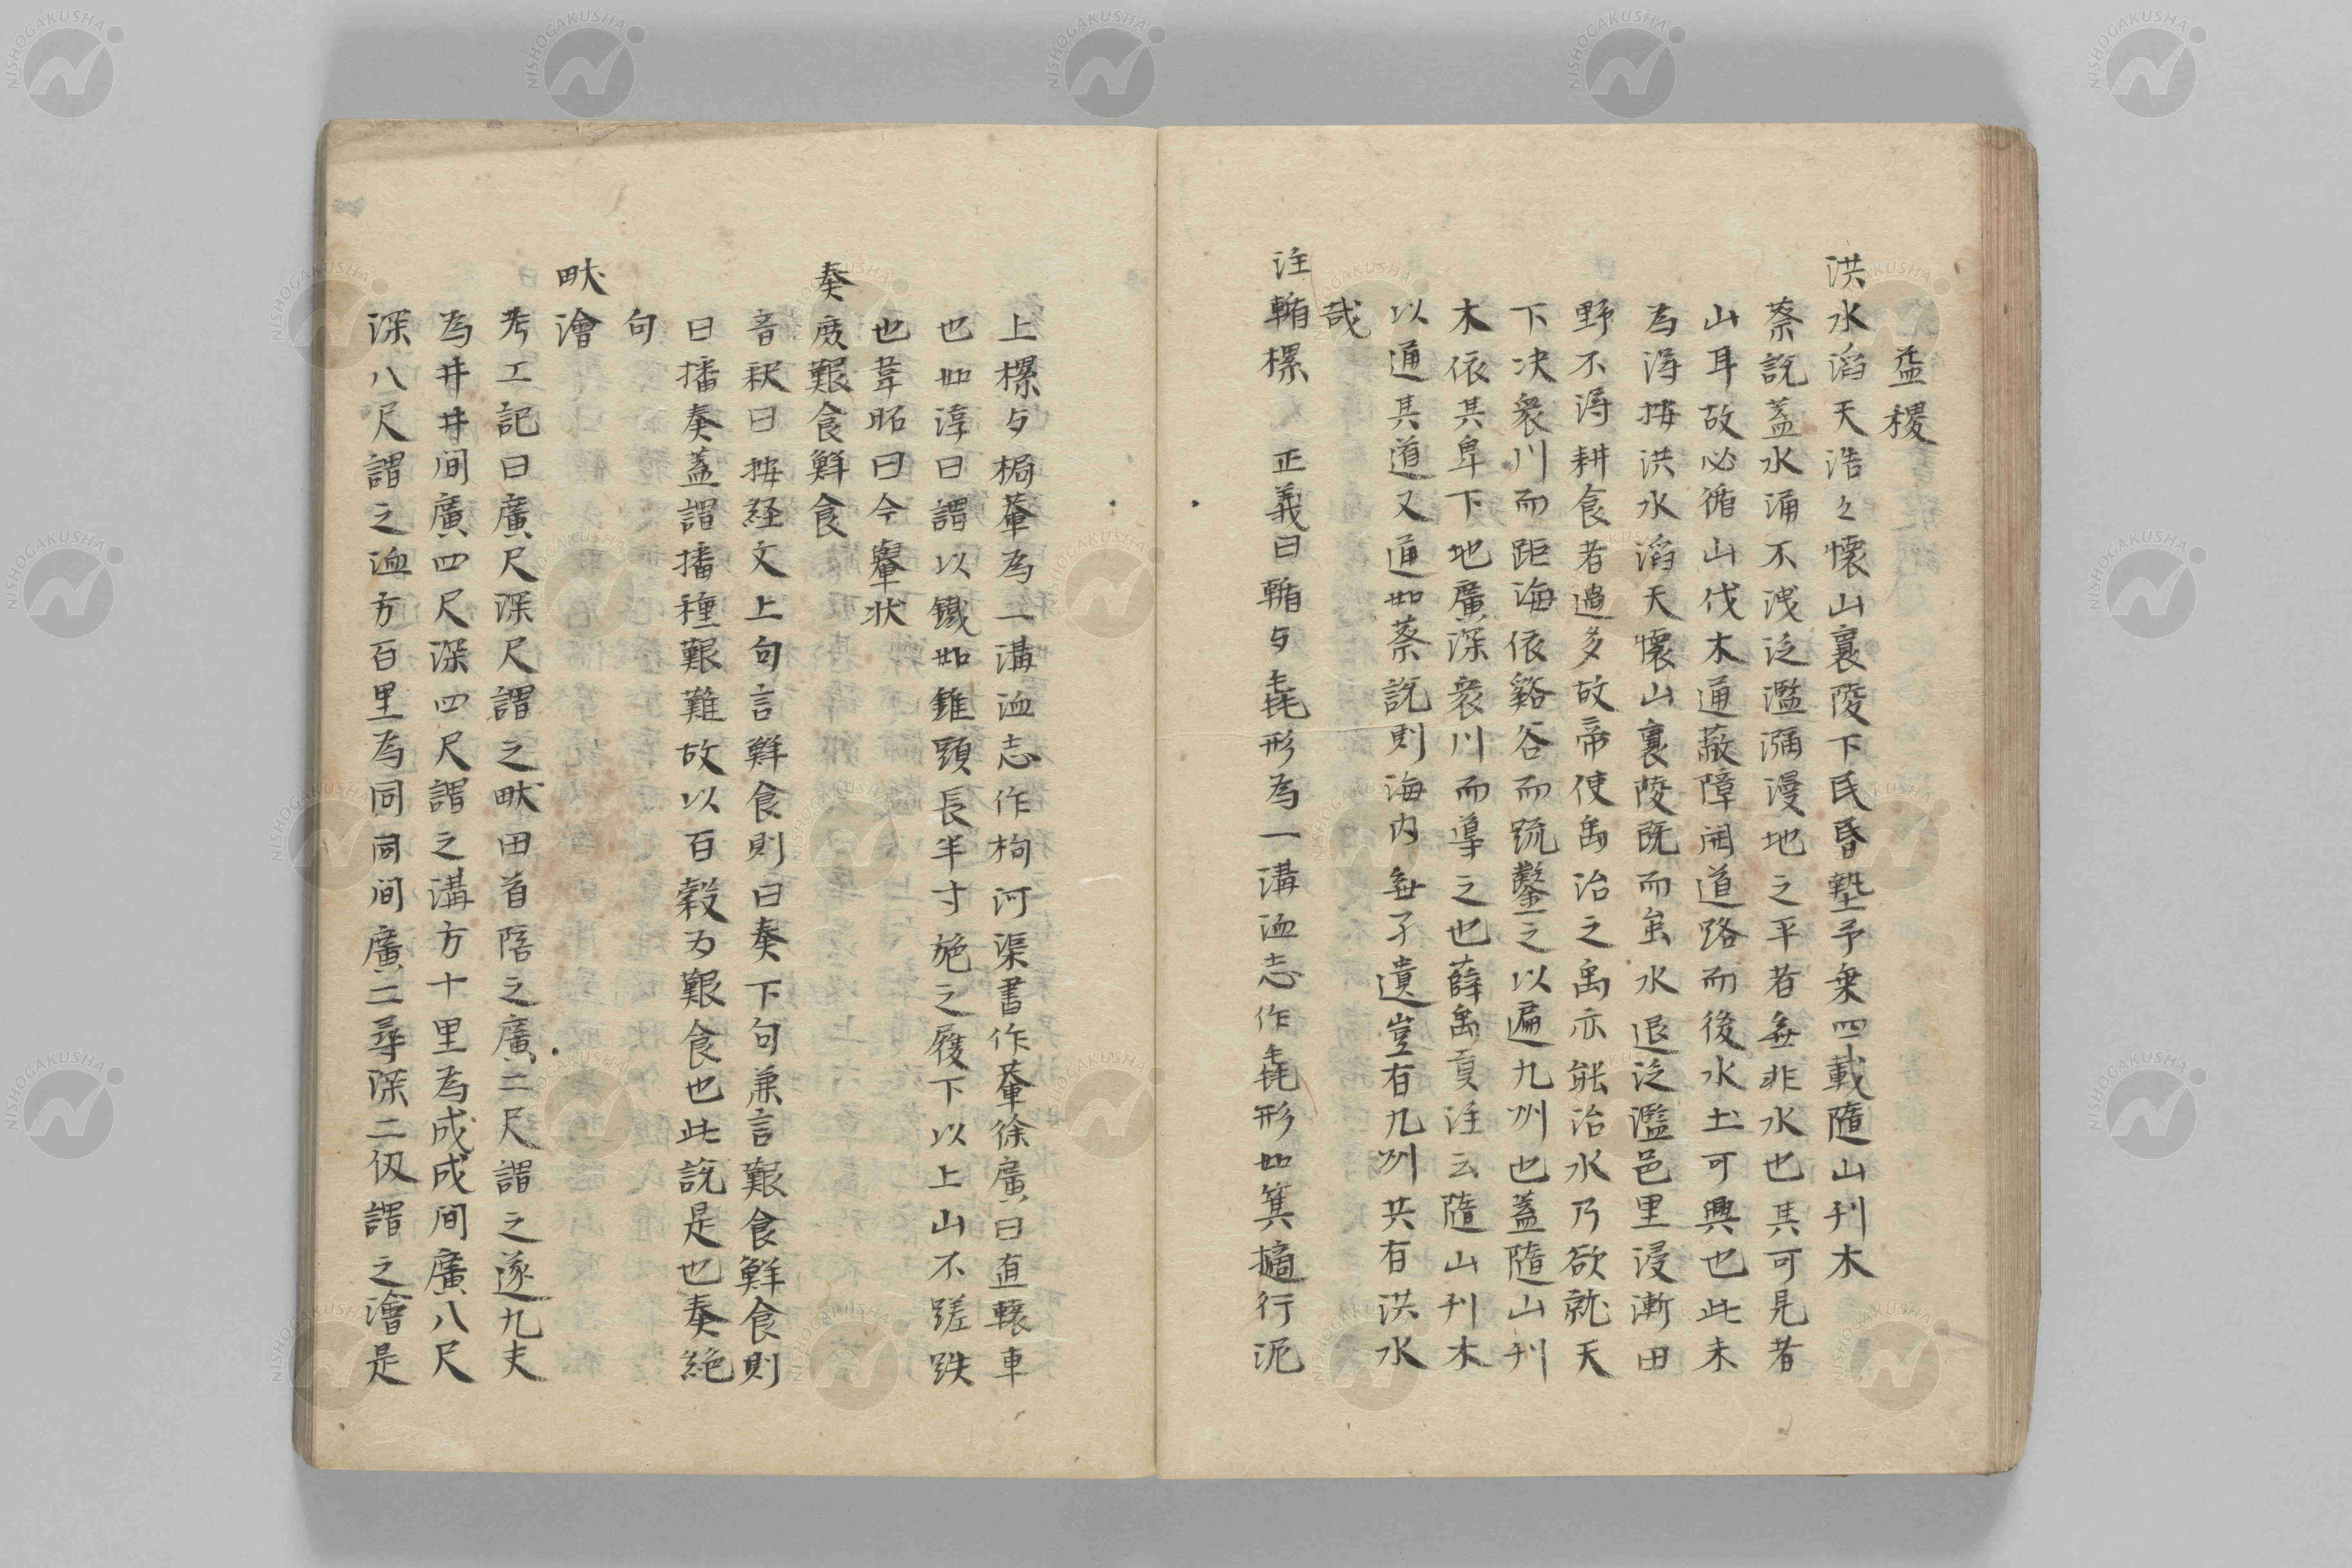 益稷
洪水滔天浩々懷山襄陵下民昏墊予乗四載隨山刊木
蔡説蓋水涌不洩泛濫瀰漫地之平者無非水也其可見者
山耳故必循山伐木通蔽障開道路而後水土可興也此未
為得按洪水滔天懷山襄陵既而虽水退泛濫邑里浸漸田
野不得耕食者過多故帝使禹治之禹亦能治水乃欲就天
下决衆川而距海依谿谷而疏鑿之以遍九州也蓋隨山刊
木依其卑下地廣深衆川而導之也薛禹貢注云隨山刊木
以通其道又通如蔡説則海内無孑遺豈有九州共有洪水
哉
注輴樏 正義曰輴与毳形為一溝洫志作毳形如箕擿行泥
上樏与梮輂為一溝洫志作梮河渠書作輂徐廣曰直轅車
也如淳曰謂以鐵如錐頭長半寸施之履下以上山不蹉跌
也韋昭曰今轝状
奏庶艱食鮮食
音釈曰按経文上句言鮮食則曰奏下句兼言艱食鮮食則
曰播奏蓋謂播種艱難故以百穀为艱食也此説是也奏絶
句
畎澮
考工記曰廣尺深尺謂之畎田首陪之廣二尺謂之遂九夫
為井井间廣四尺深四尺謂之溝方十里為成成间廣八尺
深八尺謂之洫方百里為同同间廣二尋深二仭謂之澮是
NISHOGAKUSHA